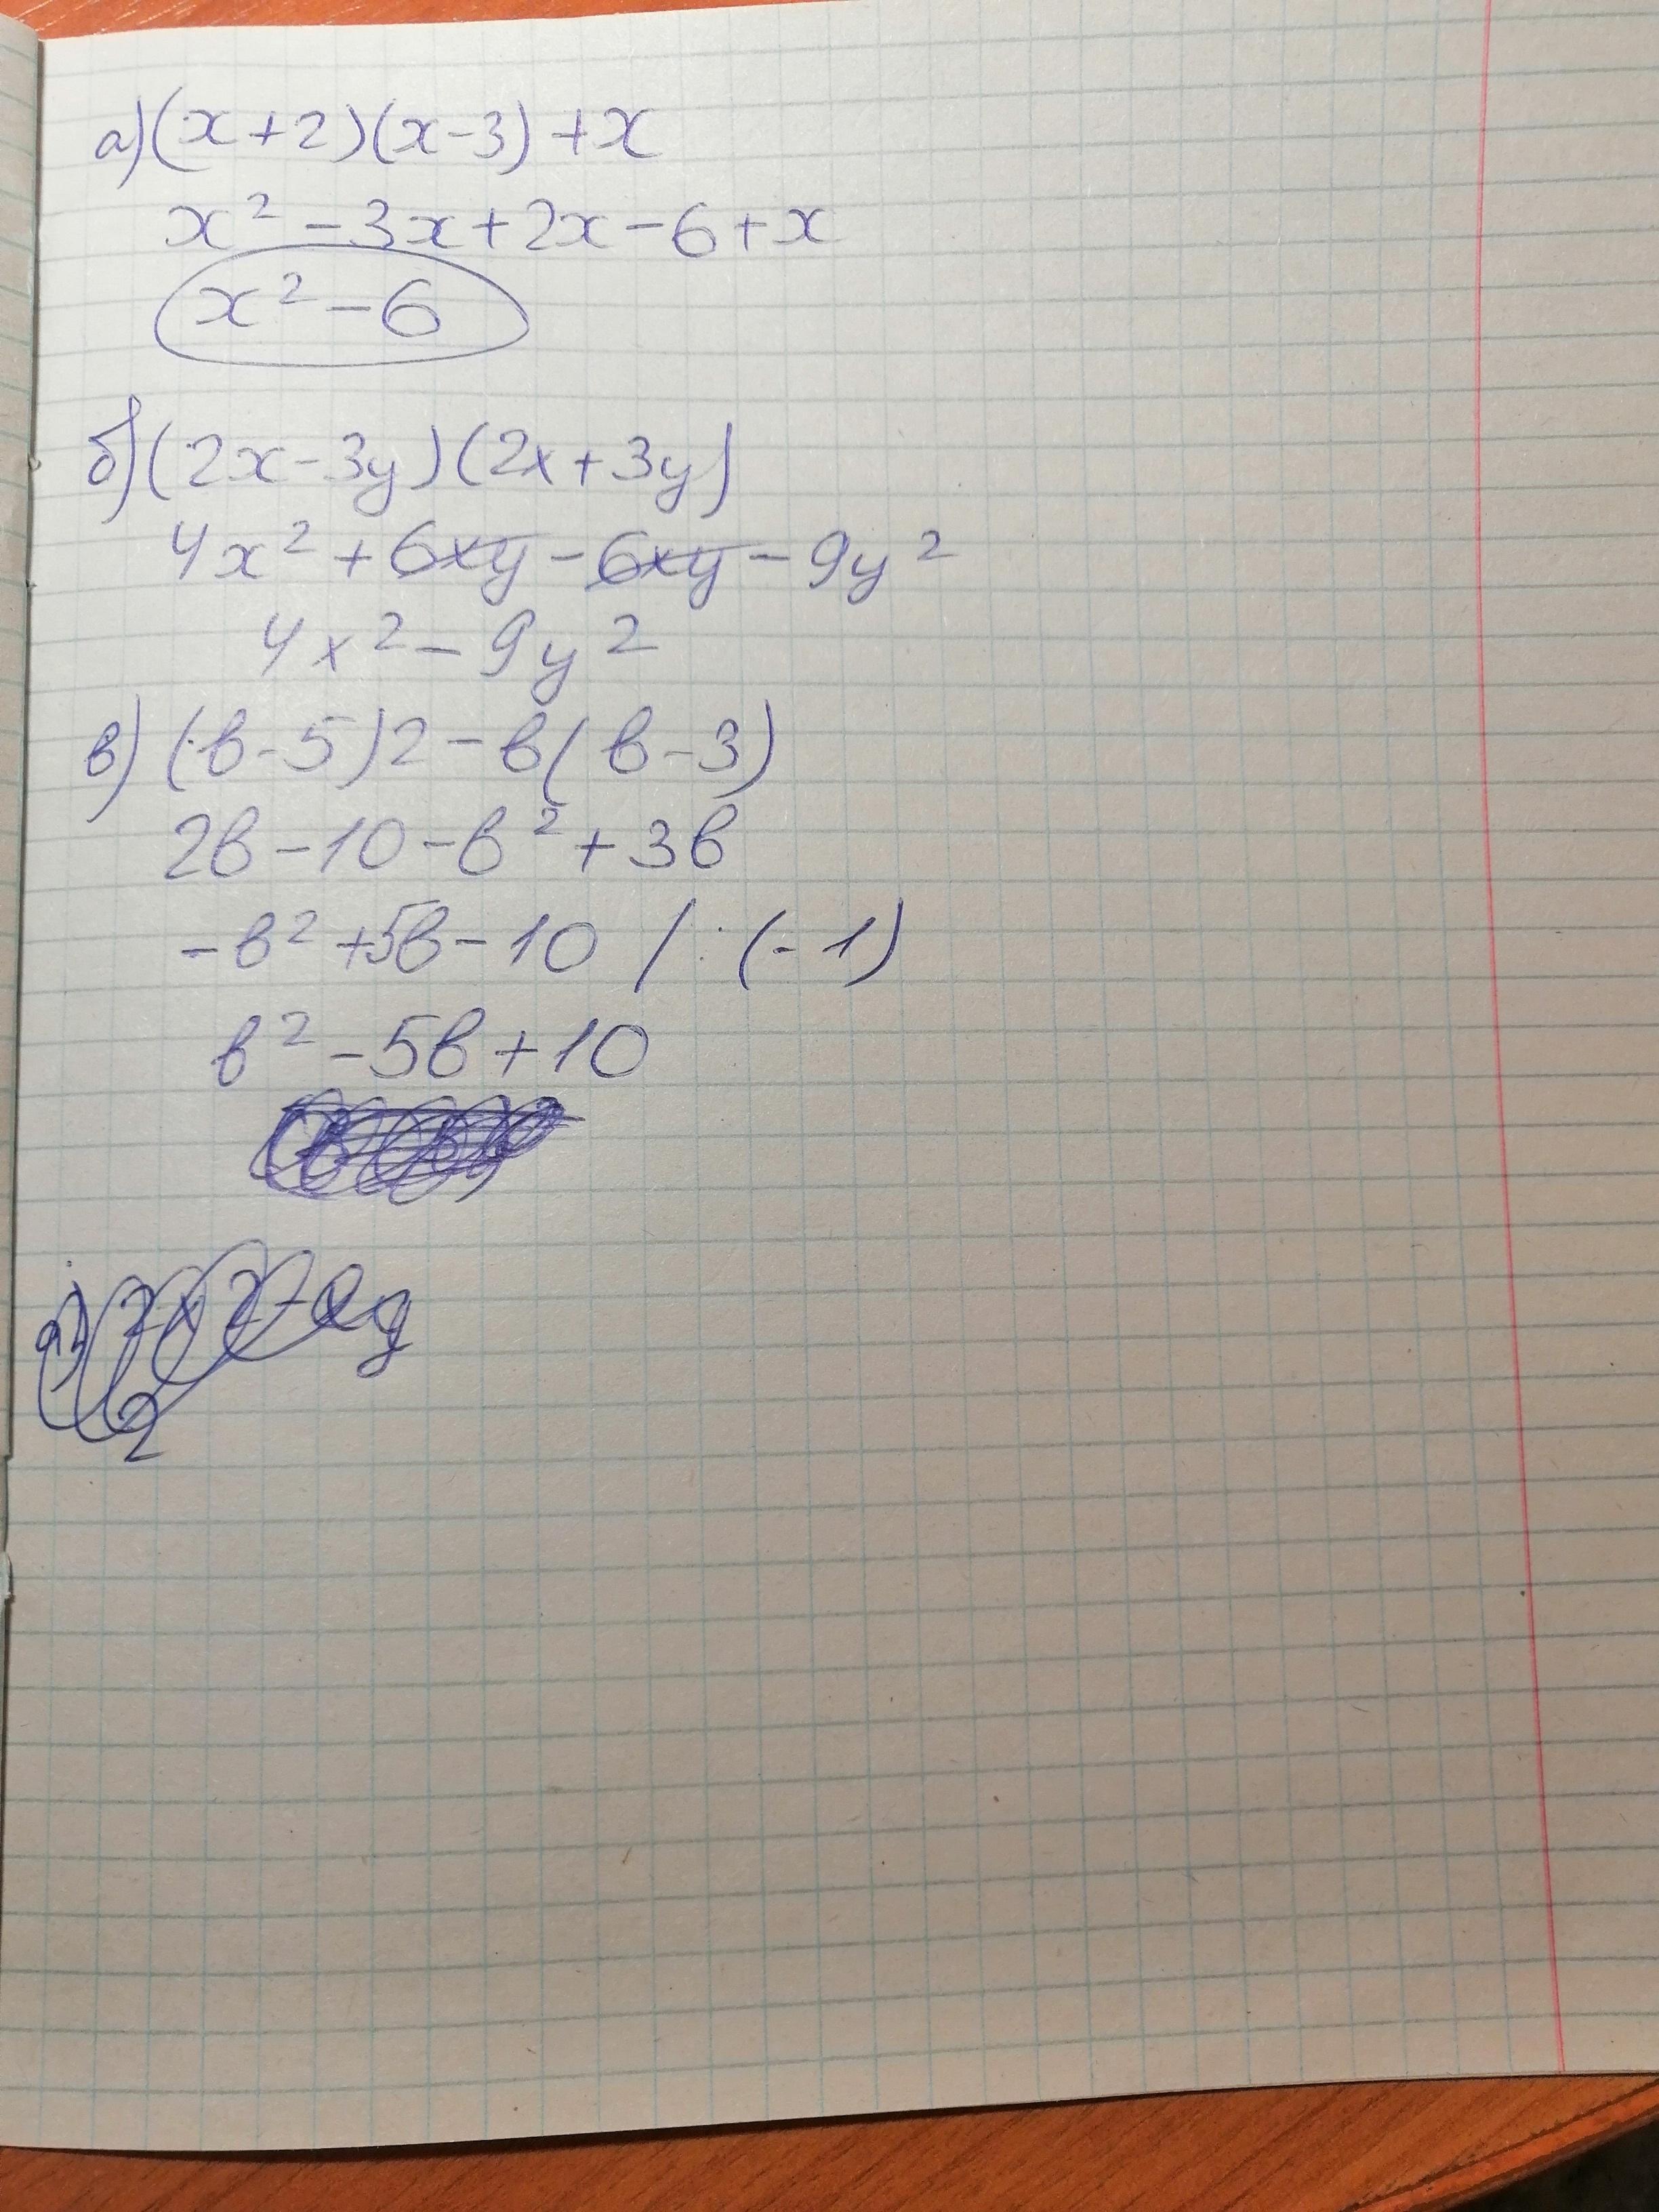 а) (x+2)(x-3)+x
x² - 3x + 2x - 6 + x
x² - 6
б) (2x-3y)(2x+3y)
4x² + 6xy - 6xy - 9y²
4x² - 9y²
в) (в-5)2 - в(в-3)
2в - 10 - в² + 3в
-в² + 5в - 10 / : (-1)
в² - 5в + 10